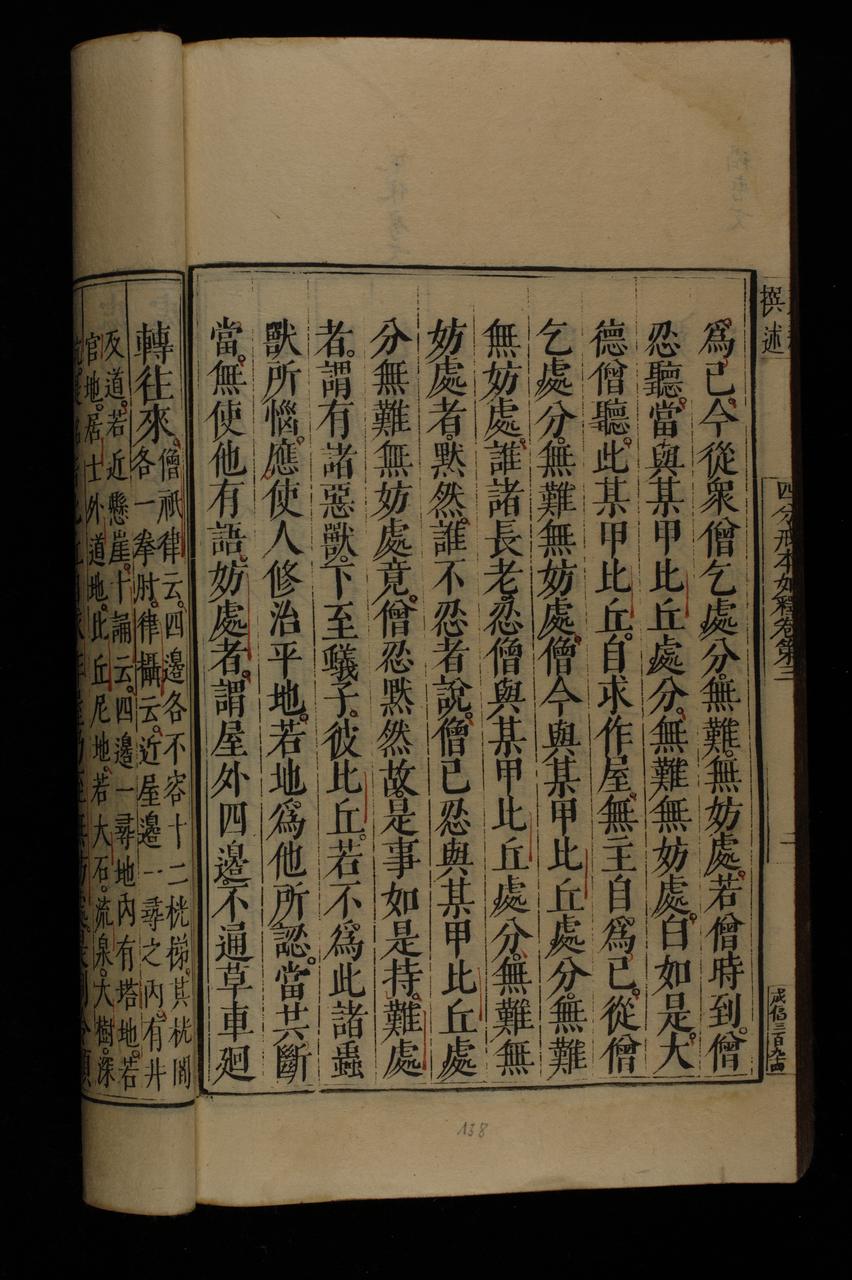 撰述
四分戒本如釋卷第三
二
咸信三百九十四
為己。今從眾僧乞處分。無難。無妨處。若僧時到。僧
忍聽。當與某甲比丘處分。無難無妨處。白如是。大
德僧聽。此某甲比丘。自求作屋。無主自為己。從僧
乞處分。無難無妨處。僧今與某甲比丘處分。無難
無妨處。誰諸長老。忍僧與某甲比丘處分。無難無
妨處者。默然。誰不忍者說。僧已忍。與某甲比丘處
分無難無妨處竟。僧忍默然故。是事如是持。難處
者。謂有諸惡獸。下至蟻子。彼比丘。若不為此諸蟲
獸所惱。應使人修治平地。若地為他所認。當共斷
當。無使他有語。妨處者。謂屋外四邊。不通草車廻
轉往來。僧祇律云。四邊各不容十二桄梯。其桄閣
各一拳肘。律攝云。近屋邊一尋之內。有井
及道。若近懸崖。十誦云。四邊一尋地內有塔地。若
官地。居士外道地。比丘尼地。若大石。流泉。大樹。深
138